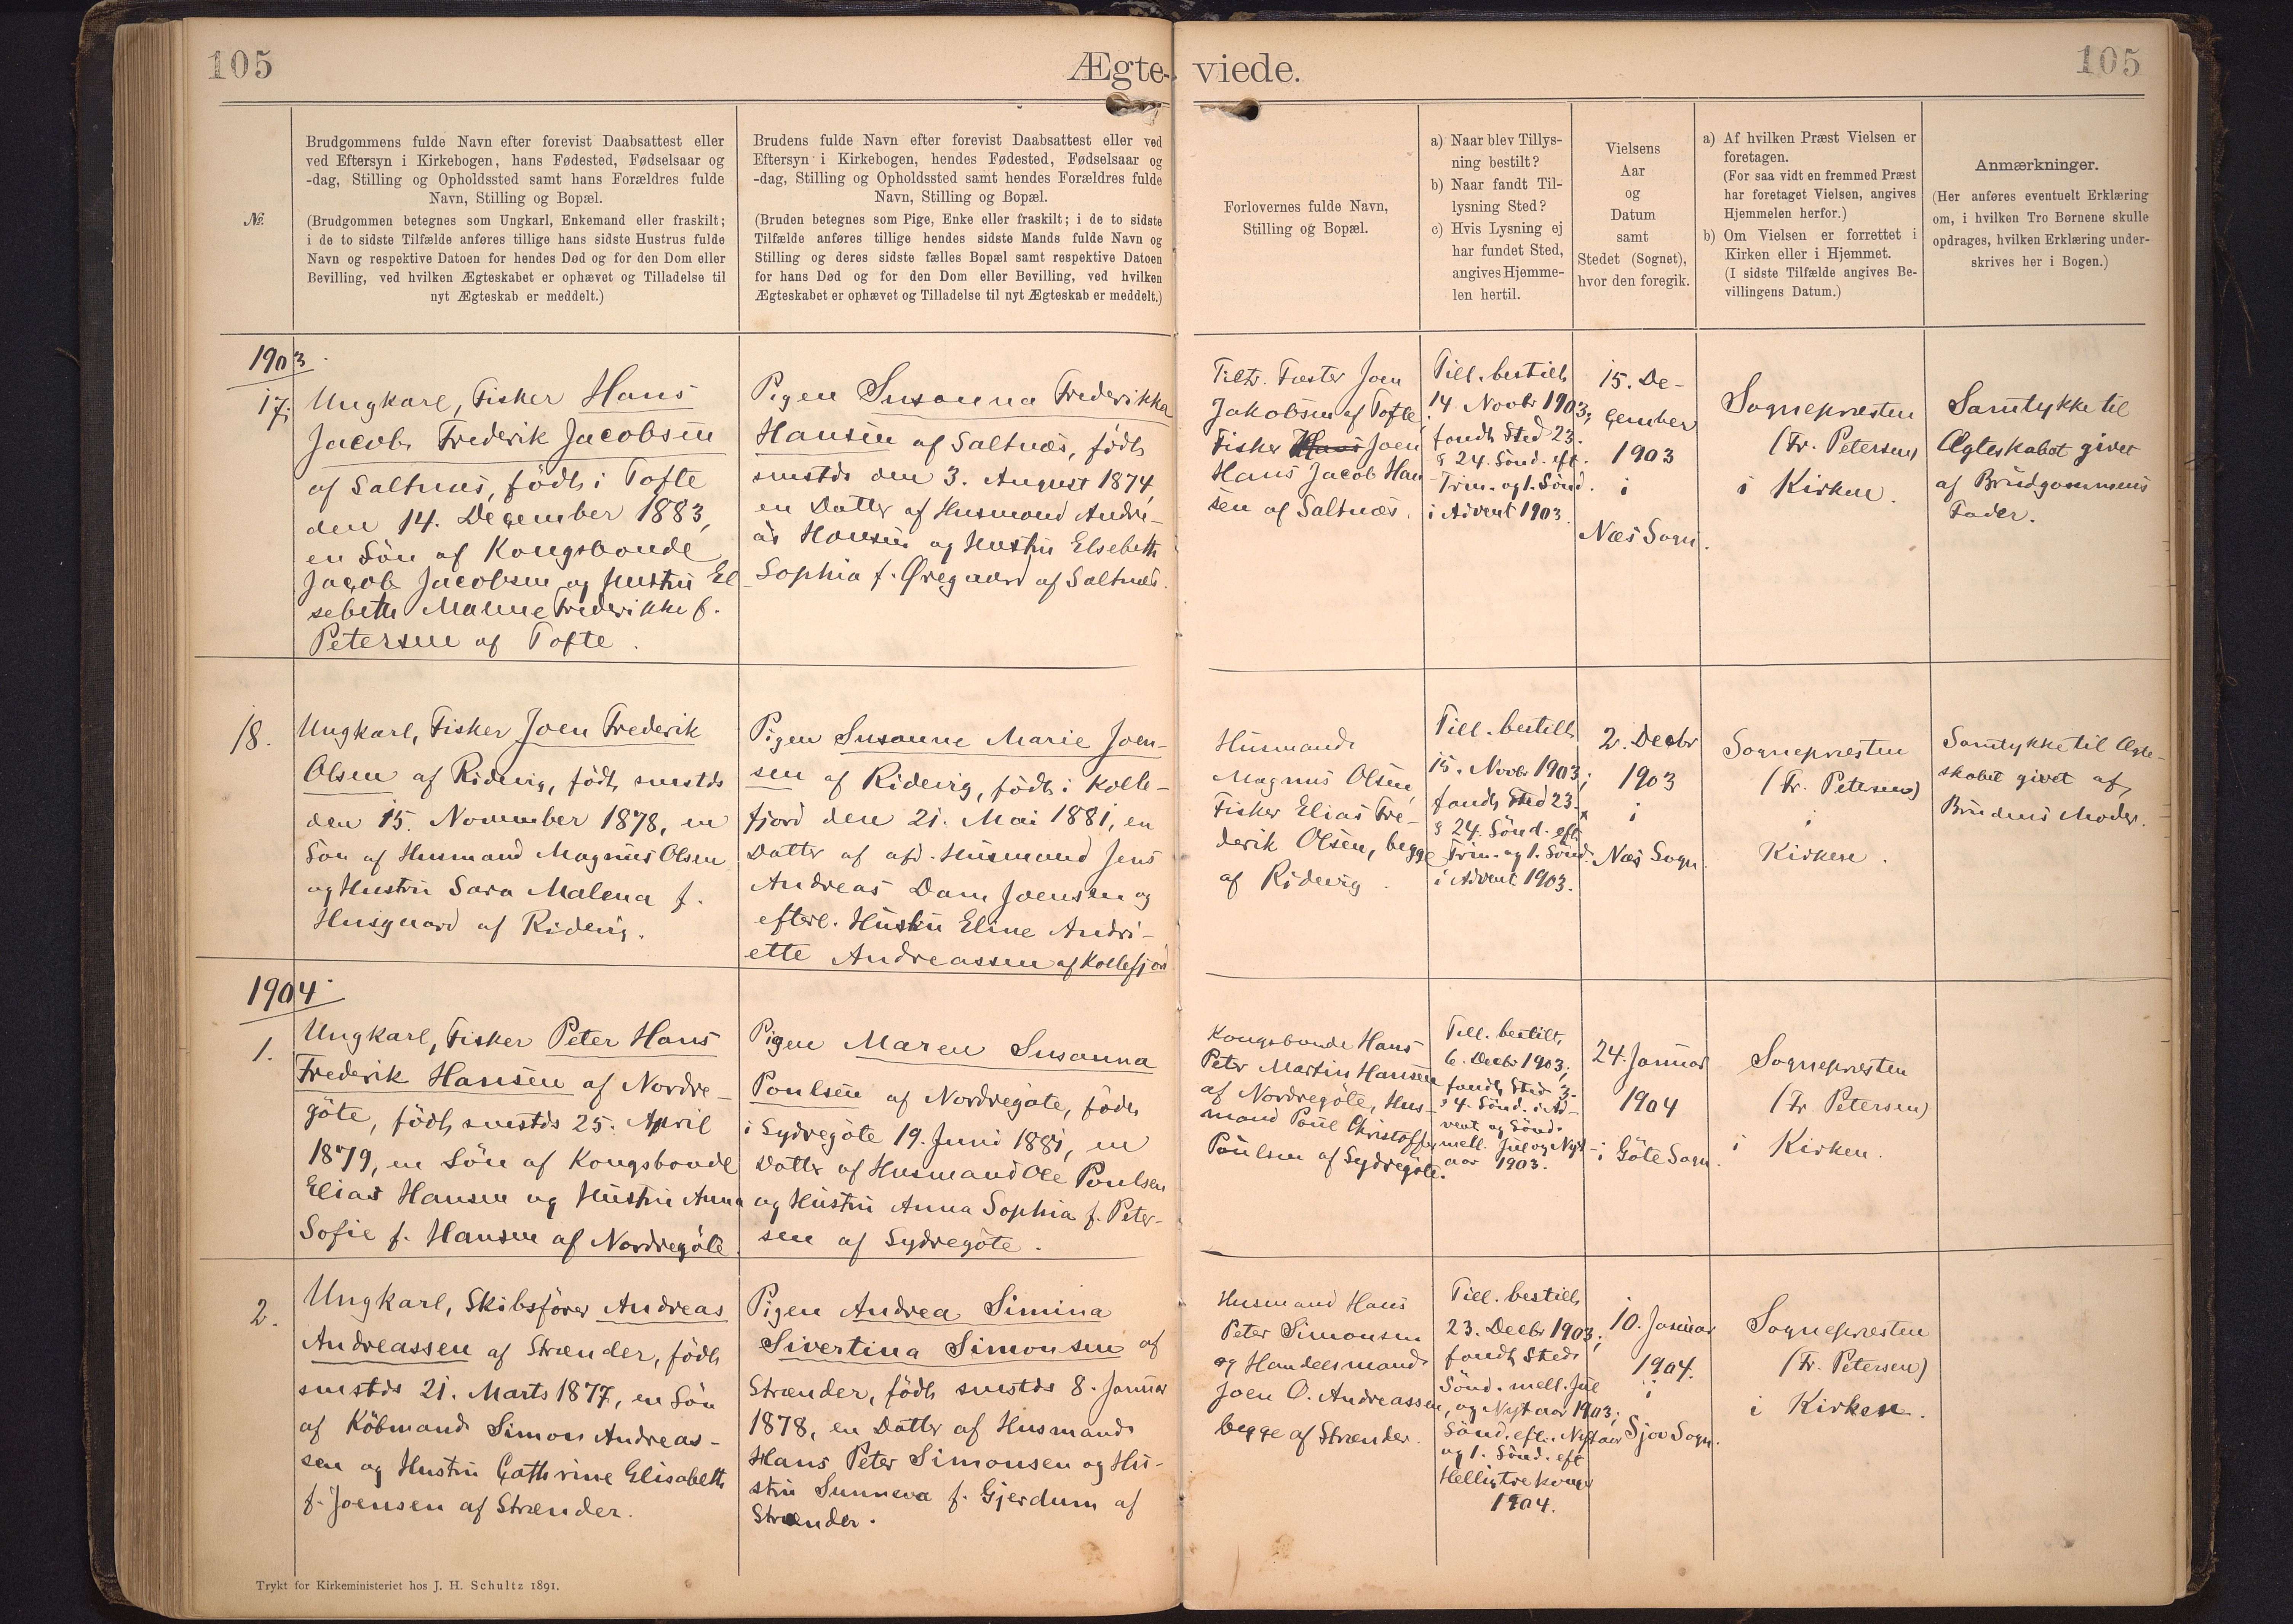 105
Ægte-
viede.
105
№.
Brudgommens fulde Navn efter forevist Daabsattest eller
ved Eftersyn i Kirkebogen, hans Fødested, Fødselsaar og
-dag, Stilling og Opholdssted samt hans Forældres fulde
Navn, Stilling og Bopæl.
(Brudgommen betegnes som Ungkarl, Enkemand eller fraskilt;
i de to sidste Tilfælde anføres tillige hans sidste Hustrus fulde
Navn og respektive Datoen for hendes Død og for den Dom eller
Bevilling, ved hvilken Ægteskabet er ophævet og Tilladelse til
nyt Ægteskab er meddelt.)
Brudens fulde Navn efter forevist Daabsattest eller ved
Eftersyn i Kirkebogen, hendes Fødested, Fødselsaar og
-dag, Stilling og Opholdssted samt hendes Forældres fulde
Navn, Stilling og Bopæl.
(Bruden betegnes som Pige, Enke eller fraskilt; i de to sidste
Tilfælde anføres tillige hendes sidste Mands fulde Navn og
Stilling og deres sidste fælles Bopæl samt respektive Datoen
for hans Død og for den Dom eller Bevilling, ved hvilken
Ægteskabet er ophævet og Tilladelse til nyt Ægteskab er meddelt.)
Forlovernes fulde Navn,
Stilling og Bopæl.
a) Naar blev Tillys-
ning bestilt?
b) Naar fandt Til-
lysning Sted?
c) Hvis Lysning ej
har fundet Sted,
angives Hjemme-
len hertil.
Vielsens
Aar
og
Datum
samt
Stedet (Sognet),
hvor den foregik.
a) Af hvilken Præst Vielsen er
foretagen.
(For saa vidt en fremmed Præst
har foretaget Vielsen, angives
Hjemmelen herfor.)
b) Om Vielsen er forrettet i
Kirken eller i Hjemmet.
(I sidste Tilfælde angives Be-
villingens Datum.)
Anmærkninger.
(Her anføres eventuelt Erklæring
om, i hvilken Tro Børnene skulle
opdrages, hvilken Erklæring under-
skrives her i Bogen.)
1903
17.
Ungkarl, Fisker Hans
Jacob Frederik Jacobsen
af Saltnæs, födt i Tofte
den 14. December 1883,
en Sön af Kongsbonde
Jacob Jacobsen og Hustru El
sebeth Malene Frederikke f.
Petersen af Tofte.
Pigen Susanna Frederikka
Hansen af Saltnæs, födt
smstds den 3. August 1874,
en Datter af Husmand Andre-
as Hansen og Hustru Elsebeth
Sophia f. Øregaard af Saltnæs.
Fæster Joen
Jakobsen af Tofte,
Fisker Joen
Hans Jacob Han
sen af Saltnæs.
Till. bestilt
14. Novbr 1903;
fandt Sted 23.
& 24. Sönd. eft.
Trin. og 1. Sönd.
i Advent 1903.
15. De-
cember
1903
i
Næs Sogn.
Sognepræsten
(Fr. Petersen)
i Kirken.
Samtykke til
Ægteskabet givet
af Brudgommens
Fader.
18.
Ungkarl, Fisker Joen Frederik
Olsen af Ridevig, födt smstds
den 15. November 1878, en
Sön af Husmand Magnus Olsen
og Hustru Sara Malena f.
Husgaard af Ridevig.
Pigen Susanne Marie Joen-
sen af Ridevig, födt i Kolle-
fjord den 21. Mai 1881, en
Datter af afd. Husmand Jens
Andreas Dam Joensen og
efterl. Hustru Eline Andri-
ette Andreassen af Kollefjord
Husmand
Magnus Olsen,
Fisker Elias Fre-
derik Olsen, begge
af Ridevig.
Till. bestilt
15. Novbr 1903;
fandt Sted 23.
& 24. Sönd. eft.
Trin. og 1. Sönd.
i Advent 1903.
2. Decbr
1903
i
Næs Sogn.
Sognepræsten
(Fr. Petersen)
i
Kirken.
Samtykke til Ægte-
skabet givet af
Brudens Moder.
1904
1.
Ungkarl, Fisker Peter Hans
Frederik Hansen af Nordre-
göte, födt smstds 25. April
1879, en Sön af Kongsbonde
Elias Hansen og Hustru Anna
Sofie f. Hansen af Nordregöte.
Pigen Maren Susanna
Poulsen af Nordregöte, födt
i Sydregöte 19. Juni 1881, en
Datter af Husmand Ole Poulsen
og Hustru Anna Sophia f. Peter-
sen af Sydregöte.
Kongsbonde Hans
Peter Martin Hansen
af Nordregöte, Hus-
mand Poul Christoffer
Poulsen af Sydregöte.
Till. bestilt
6. Decbr 1903;
fandt Sted 3.
& 4. Sönd. i Ad-
vent og Sönd.
mell. Jul og Nyt-
aar 1903.
24. Januar
1904
i Göte Sogn.
Sognepræsten
(Fr. Petersen)
i Kirken.
2.
Ungkarl, Skibsförer Andreas
Andreassen af Strænder, födt
smstds 21. Marts 1877, en Sön
af Köbmand Simon Andreas-
sen og Hustru Cathrine Elisabeth
f. Joensen af Strænder.
Pigen Andrea Simina
Sivertina Simonsen af
Strænder, födt smstds 8. Januar
1878, en Datter af Husmand
Hans Peter Simonsen og Hu-
stru Sunneva f. Gjerdum af
Strænder.
Husmand Hans
Peter Simonsen
og Handelsmand
Joen O. Andreassen,
begge af Strænder.
Till. bestilt
23. Decbr 1903;
fandt Sted
Sönd. mell. Jul
og Nytaar 1903;
Sönd. eft. Nytaar
og 1. Sönd. eft
Hellig tre konger
1904.
10. Januar
1904.
i
Sjov Sogn.
Sognepræsten
(Fr. Petersen)
i Kirken.
Trykt for Kirkeministeriet hos J. H. Schultz 1891.